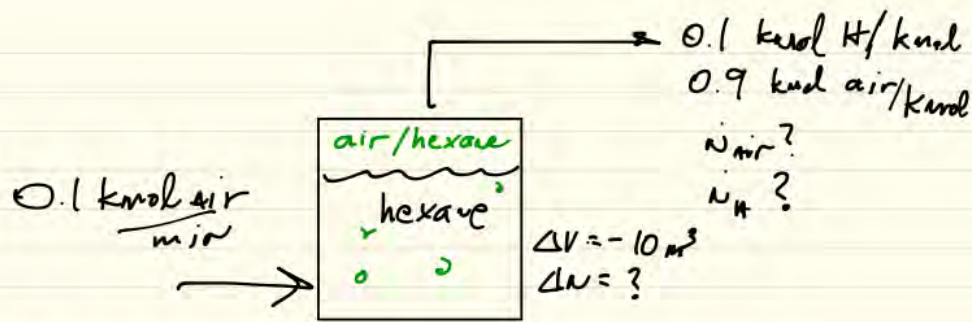 0.1 kmol H/kmol
0.9 kmol air/kmol
ṅ air?
ṅ H?
air/hexane
hexane
0.1 kmol air
min
ΔV = -10 m³
Δn = ?